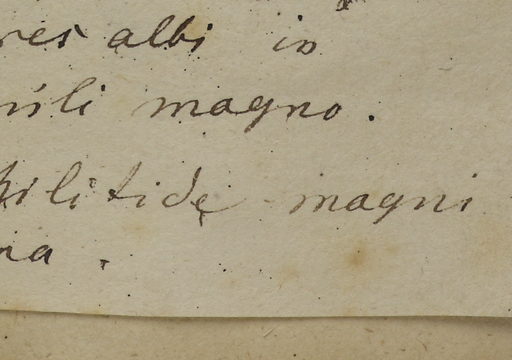 res albi in
ili magno.
bilitidę magni
na.